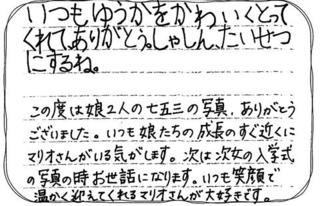 いつもゆうかをかわいくとって
くれて、ありがとう。しゃしん、たいせつ
にするね。
この度は娘2人の七五三の写真、ありがとう
ございました。いつも娘たちの成長のすぐ近くに
マリオさんがいる気がします。次は次女の入学式
の写真の時お世話になります。いつも笑顔で
温かく迎えてくれるマリオさんが大好きです。